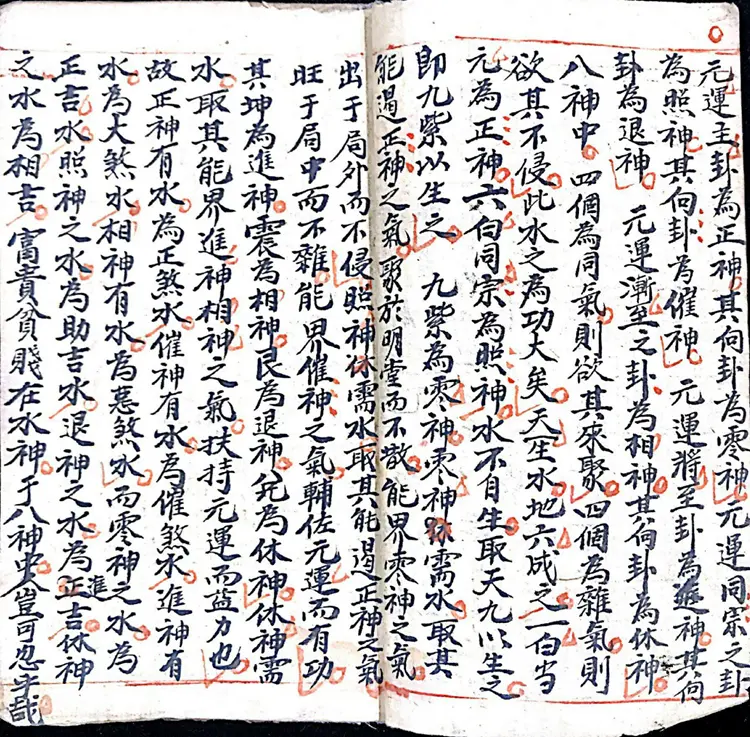 元運主卦為正神其向卦為零神元運同宗之卦
為照神其向卦為催神 元運將至卦為進神其向
卦為退神 元運漸至之卦為相神其向卦為休神
八神中四個為同氣則欲其來聚四個為雜氣則
欲其不侵此水之為功大矣天生水地六成之一白当
元為正神六白同宗為照神水不自生取天九以生之
即九紫以生之 九紫為零神零神休需水取其
能遏正神之氣聚於明堂而不散能界零神之氣
出于局外而不侵照神休需水取其能遏正神之氣
旺于局中而不雜能界催神之氣輔佐元運而有功
其坤為進神震為相神艮為退神兌為休神休神需
水取其能界進神相神之氣扶持元運而益力也
故正神有水為正煞水催神有水為催煞水進神有
水為大煞水相神有水為惡煞水而零神之水為
正吉水照神之水為助吉水退神之水為進吉休神
之水為相吉富貴貧賤在水神于八神中豈可忽乎哉